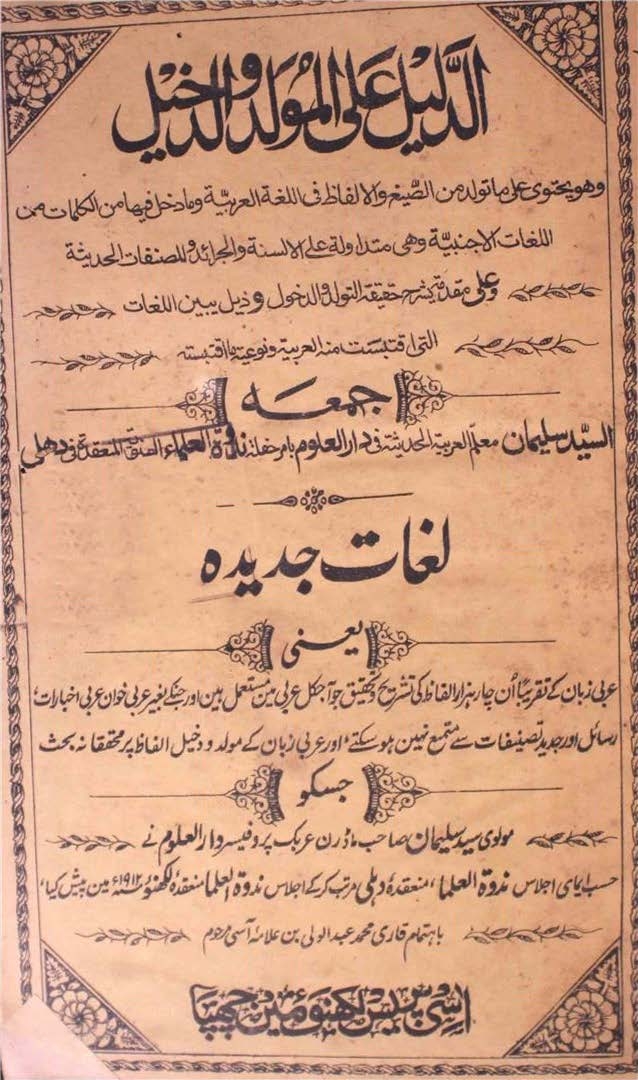 الدَّليل على المُولَد والدخيل
وهو يحتوى على ما تولد من الصِّيَغ والالفاظ فى اللغة العربيَّة وما دخل فيها من الكلمات من
اللغات الاجنبيَّة وهى متداولة على الالسنة والجرائد والمصنفات الحديثة
وعلى مقدمة يشرح حقيقة التولد والدخول وذيل يبين اللغات
التى اقتبست منه العربية ونوعية ما اقتبسته
جمعه
السيّد سليمان معلم العربية الحديثة فى دار العلوم بامر حفلة ندوة العلماء المنعقدة فى دهلى
لغات جدیدہ
یعنی
عربی زبان کے تقریباً اُن چار ہزار الفاظ کی تشریح و تحقیق جو آجکل عربی مین مستعمل ہین اور جنکے بغیر عربی خوان عربی اخبارات،
رسائل اور جدید تصنیفات سے متمتع نہین ہو سکتے، اور عربی زبان کے مولد و دخیل الفاظ پر محققانہ بحث
جسکو
مولوی سید سلیمان صاحب ماڈرن عربک پروفیسر دار العلوم نے
حسب ایمای اجلاس ندوۃ العلما، منعقدۂ دہلی مرتب کر کے اجلاس ندوۃ العلما منعقدۂ لکھنؤ ۱۹۱۲ء مین پیش کیا،
باہتمام قاری محمد عبد الولی بن علامہ آسی مرحوم
آسی پریس لکھنؤ مین چھپا